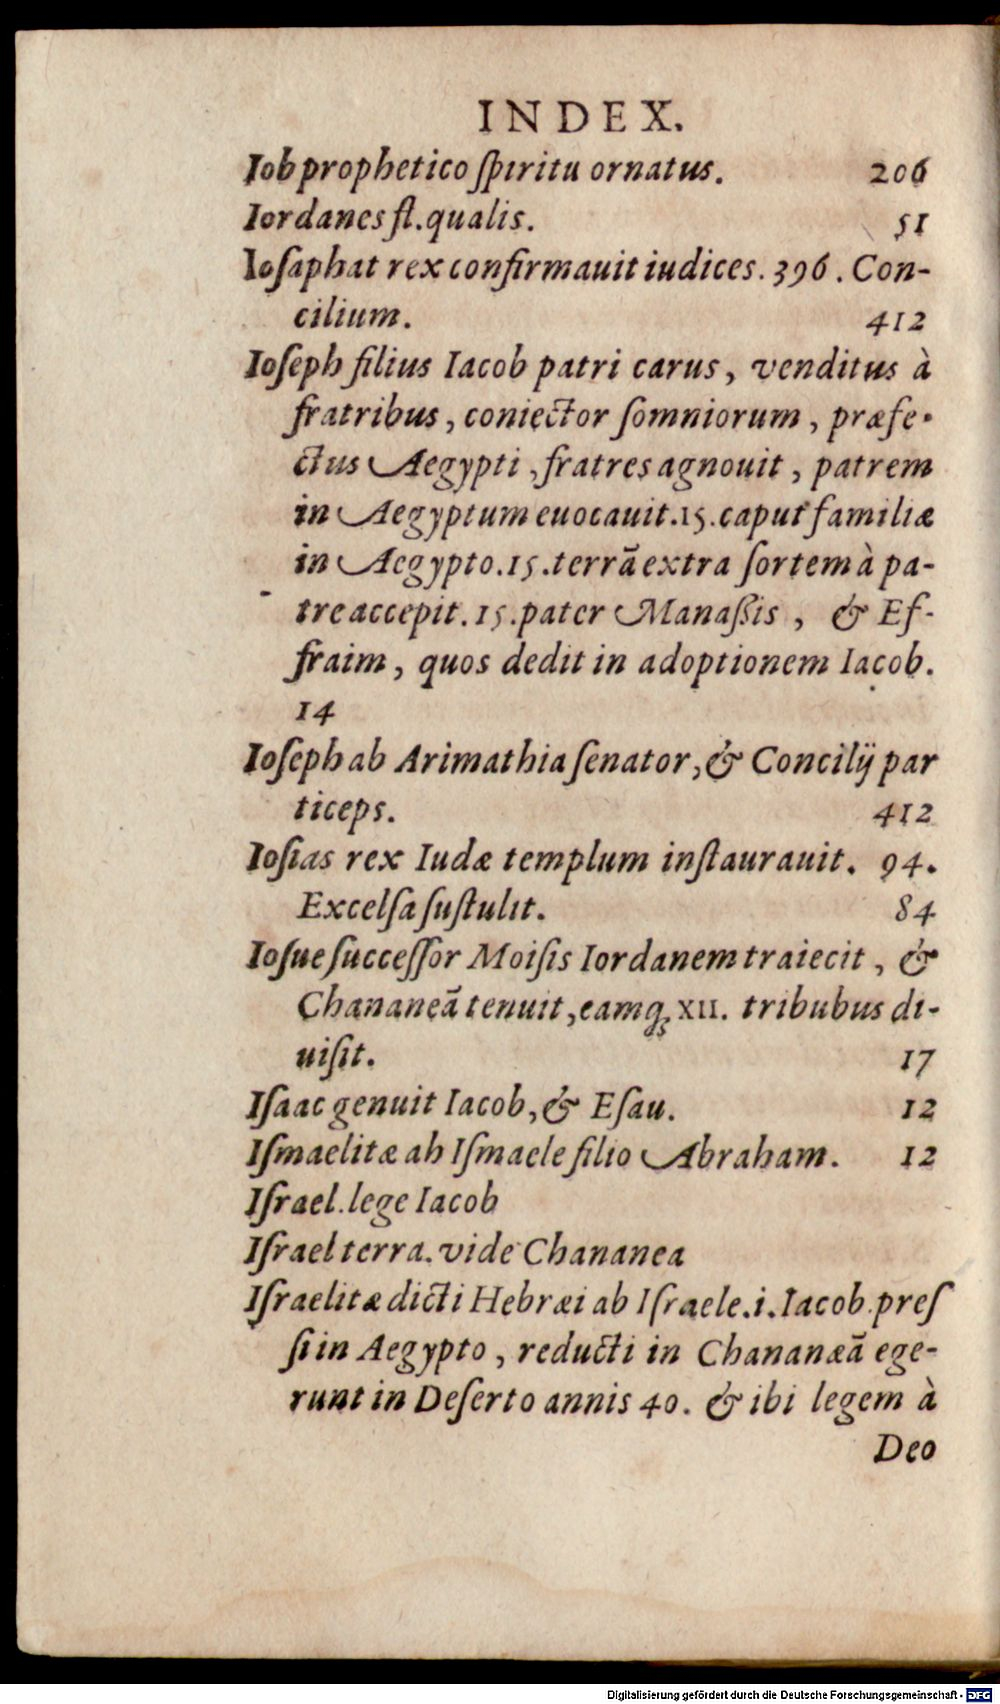 INDEX.
Iob prophetico ſpiritu ornatus. 206
Iordanes fl. qualis. 51
Ioſaphat rex confirmauit iudices. 396. Con-
cilium. 412
Ioſeph filius Iacob patri carus, venditus à
fratribus, coniector ſomniorum, præfe-
ctus Aegypti, fratres agnouit, patrem
in Aegyptum euocauit. 15. caput familiæ
in Aegypto. 15. terrã extra ſortem à pa-
tre accepit. 15. pater Manaßis, & Ef-
fraim, quos dedit in adoptionem Iacob.
14
Ioſeph ab Arimathia ſenator, & Concilij par
ticeps. 412
Ioſias rex Iudæ templum inſtaurauit. 94.
Excelſa ſuſtulit. 84
Ioſue ſucceſſor Moiſis Iordanem traiecit, &
Chananeã tenuit, eamq; XII. tribubus di-
uiſit. 17
Iſaac genuit Iacob, & Eſau. 12
Iſmaelitæ ab Iſmaele filio Abraham. 12
Iſrael. lege Iacob
Iſrael terra. vide Chananea
Iſraelitæ dicti Hebræi ab Iſraele. i. Iacob. preſ
ſi in Aegypto, reducti in Chananæã ege-
runt in Deſerto annis 40. & ibi legem à
Deo
Digitalisierung gefördert durch die Deutsche Forschungsgemeinschaft - DFG